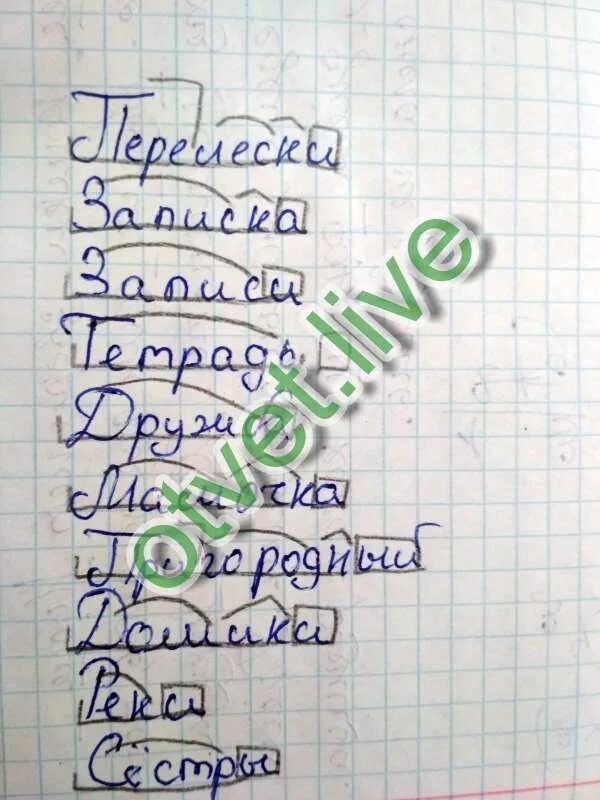 Перелески
Записка
Записи
Тетрадь
Мамочка
Пригородный
Домики
Реки
Сёстры
otvet.live